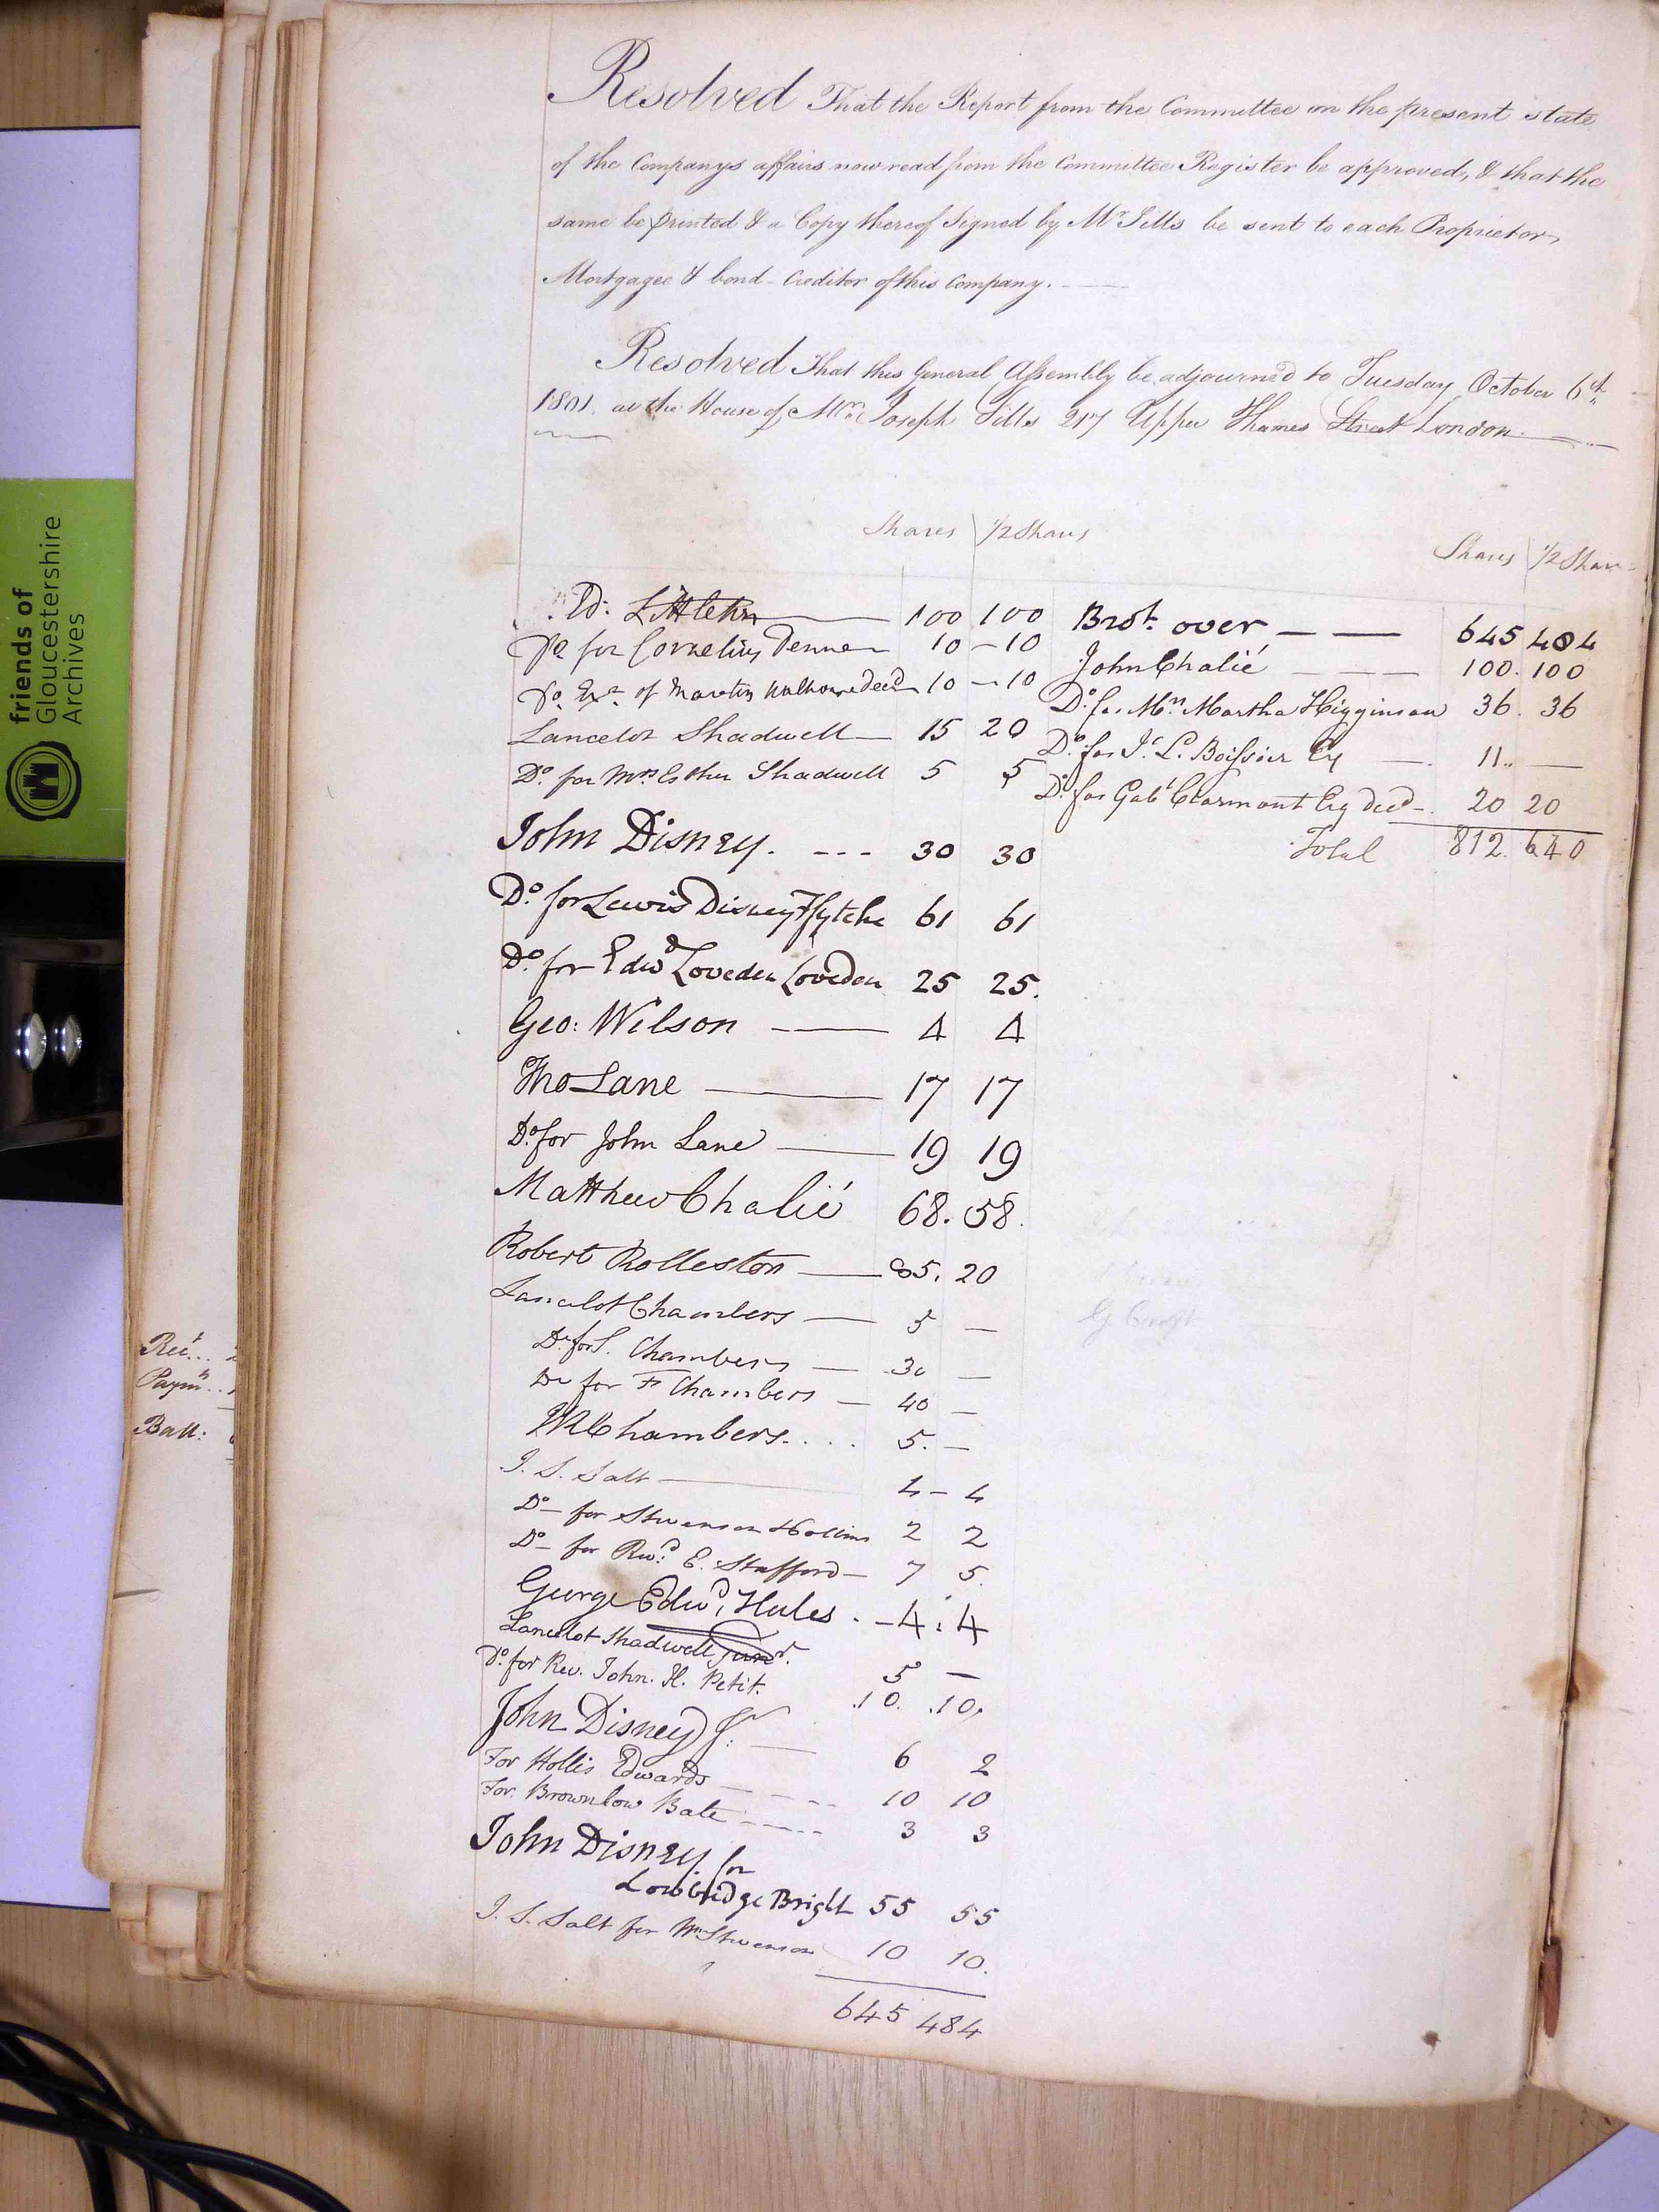 Resolved That the Report from the Committee on the present state
of the Companys affairs now read from the Committee Register be approved, & that the
same be printed & a Copy thereof Signed by Mr Sills be sent to each Proprietor,
Mortgagee & bond-Creditor of this Company.
Resolved That this General Assembly be adjourned to Tuesday October 6th
1801. at the House of Mr Joseph Sills 217 Upper Thames Street London.
Shares 1/2 Shares
Ed. Littlehn 100 100
Do for Cornelius Denne 10 - 10
Do Exr of Martin decd 10 - 10
Lancelot Shadwell 15 20
Do for Mrs Esther Shadwell 5 5
John Disney. --- 30 30
Do for Lewis Disney Ffytche 61 61
Do for Edwd Loveden Loveden 25 25.
Geo: Wilson 4 4
Tho Lane 17 17
Do for John Lane 19 19
Matthew Chalié 68. 58.
Robert Rolleston 85. 20
Lancelot Chambers 5 —
Do for S. Chambers 30 —
Do for F Chambers 40 —
Chambers.... 5. —
J. S. Salt 4 - 4
Do for Stevenson Hollins 2 2
Do for Revd. E. Stafford 7 5.
George Edwd. Hules. - 4 : 4
Lancelot Shadwell Junr. 5 —
Do for Rev. John. H. Petit. 10. 10.
John Disney Jr 6 2
For Hollis Edwards 10 10
For Brownlow Bate 3 3
John Disney. for
Lowbridge Bright 55 55
J. S. Salt for Wm Stevenson 10 10.
645 484
Shares 1/2 Shares
Brot. over 645 484
John Chalié 100. 100
Do for Mrs Martha Higginson 36. 36
Do for J. L. Boissier Esq 11.. —
Do for Gabl Clarmont Esq decd. 20 20
Total 812. 640
friends of
Gloucestershire
Archives
Rect...
Paymts..
Ball: